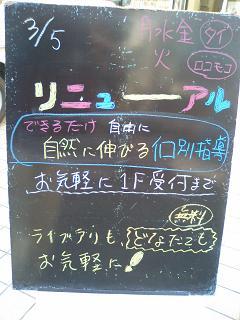 3/5
月水金 タイ
火 ロコモコ
リニューアル
できるだけ 自由に
自然に伸びる 個別指導
お気軽に 1F受付まで
無料
ライブラリも、どなたでも
お気軽に!